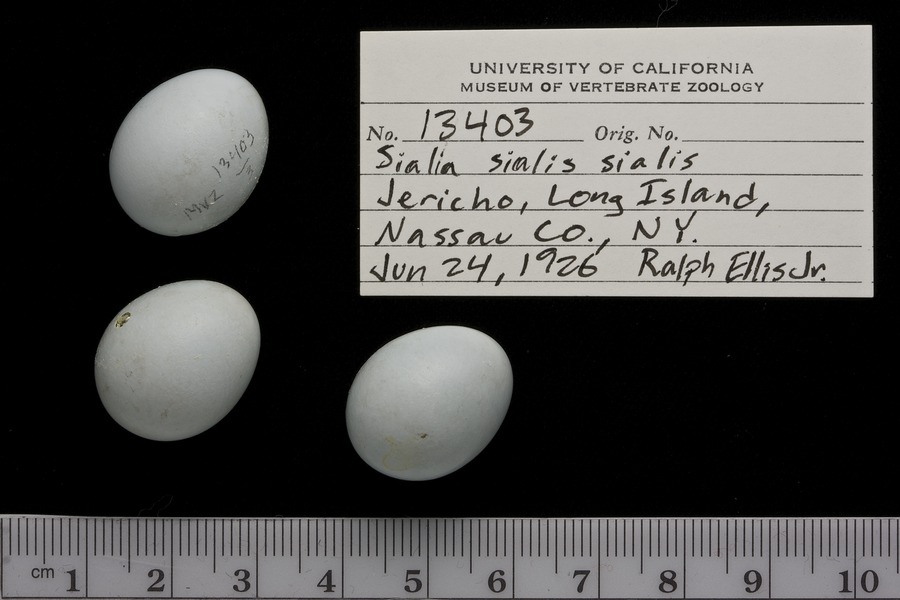 UNIVERSITY OF CALIFORNIA
MUSEUM OF VERTEBRATE ZOOLOGY
No. 13403 Orig. No.
Sialia sialis sialis
Jericho, Long Island,
Nassau Co., NY.
Jun 24, 1926 Ralph Ellis Jr.
13403
MVZ
cm 1 2 3 4 5 6 7 8 9 10